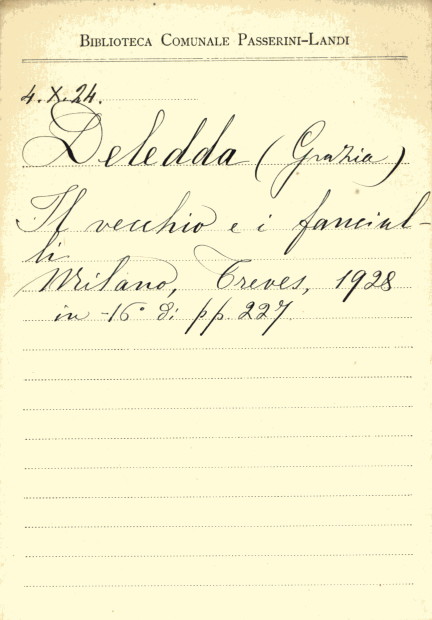 BIBLIOTECA COMUNALE PASSERINI-LANDI
4.X.24.
Deledda (Grazia)
Il vecchio e i fanciul-
li
Milano, Treves, 1928
in -16° di pp. 227